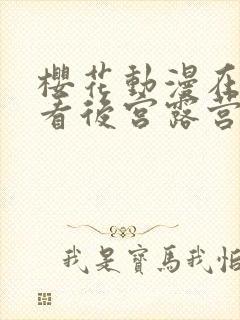 櫻花動漫在
看後宮露營
我是寶馬我怕